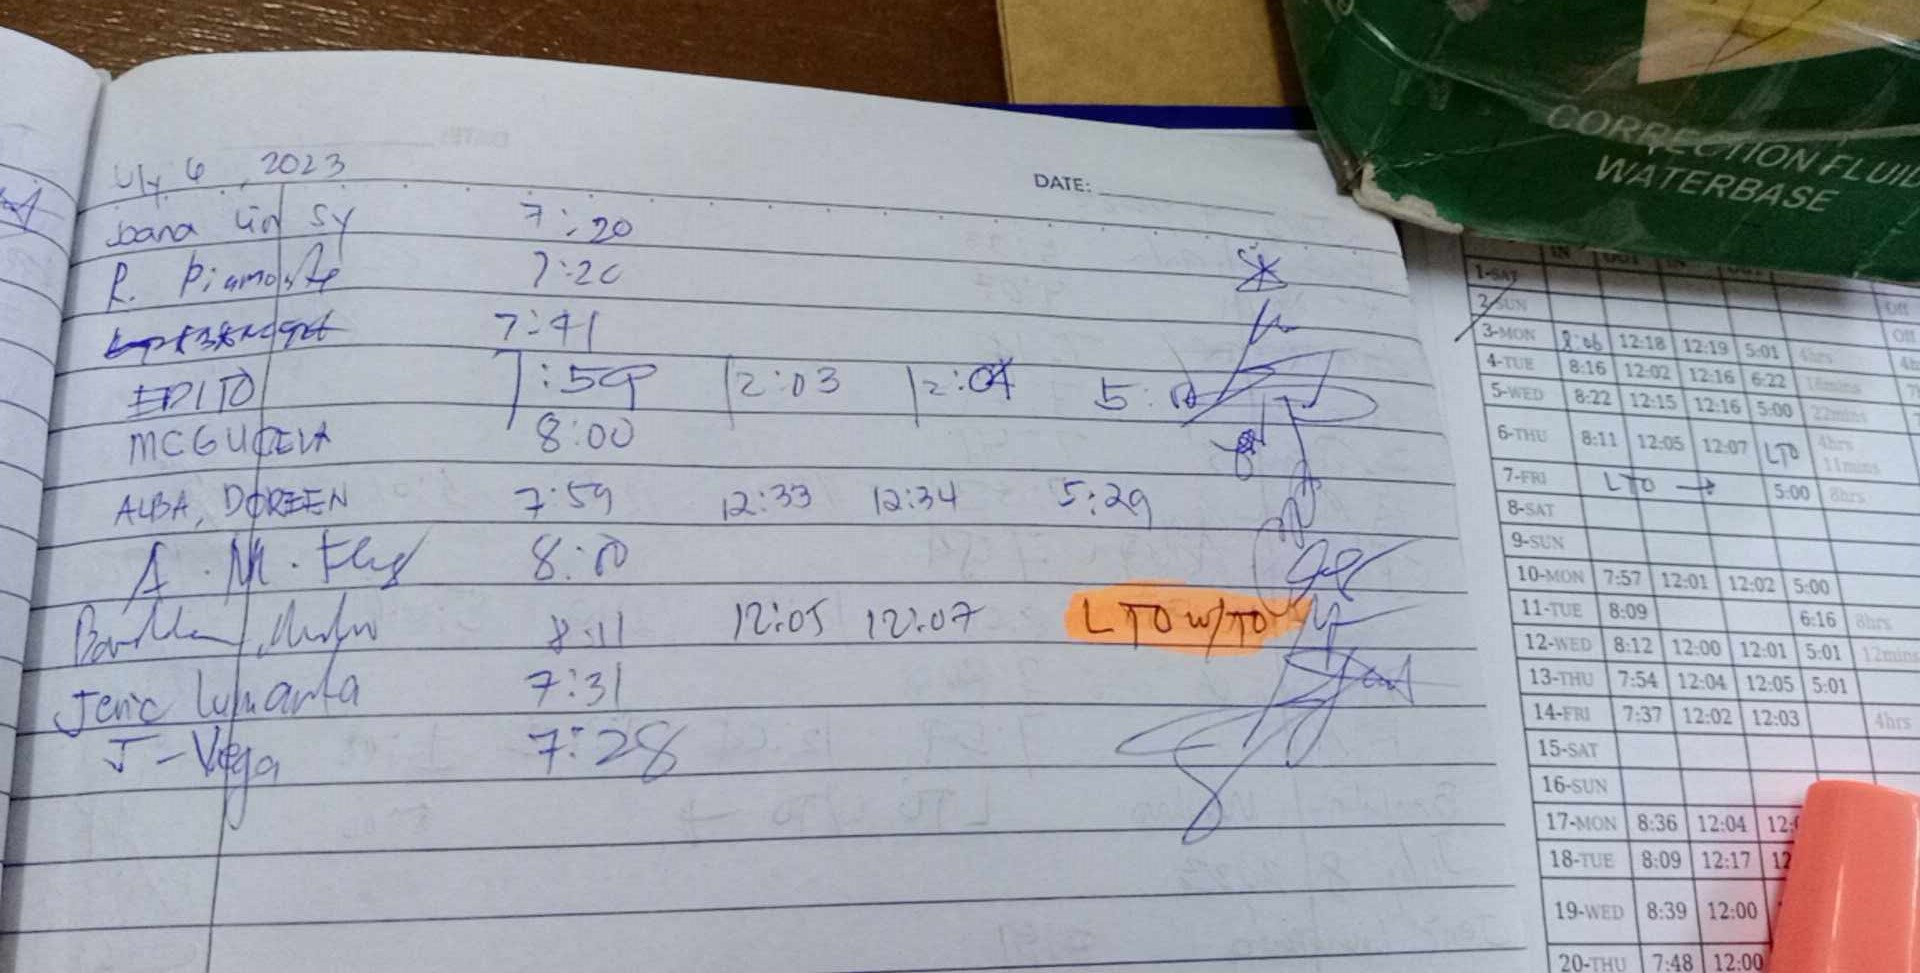 July 6, 2023
DATE:
Joana Lin Sy 7:20
R. Piamonte 7:20
7:41
EDITO 7:59 12:03 12:04 5:
MCGUCEVA 8:00
ALBA, DOREEN 7:59 12:33 12:34 5:29
A. M. 8:00
8:11 12:05 12:07 LTO w/TO
Jeric Lumanta 7:31
J-Vega 7:28
CORRECTION FLUID
WATERBASE
IN OUT IN OUT
1-SAT Off
2-SUN Off
3-MON 8:06 12:18 12:19 5:01 4hrs
4-TUE 8:16 12:02 12:16 6:22 16mins
5-WED 8:22 12:15 12:16 5:00 22mins
6-THU 8:11 12:05 12:07 LTO 4hrs
11mins
7-FRI LTO → 5:00 8hrs
8-SAT
9-SUN
10-MON 7:57 12:01 12:02 5:00
11-TUE 8:09 6:16 8hrs
12-WED 8:12 12:00 12:01 5:01 12mins
13-THU 7:54 12:04 12:05 5:01
14-FRI 7:37 12:02 12:03 4hrs
15-SAT
16-SUN
17-MON 8:36 12:04
18-TUE 8:09 12:17
19-WED 8:39 12:00
20-THU 7:48 12:00